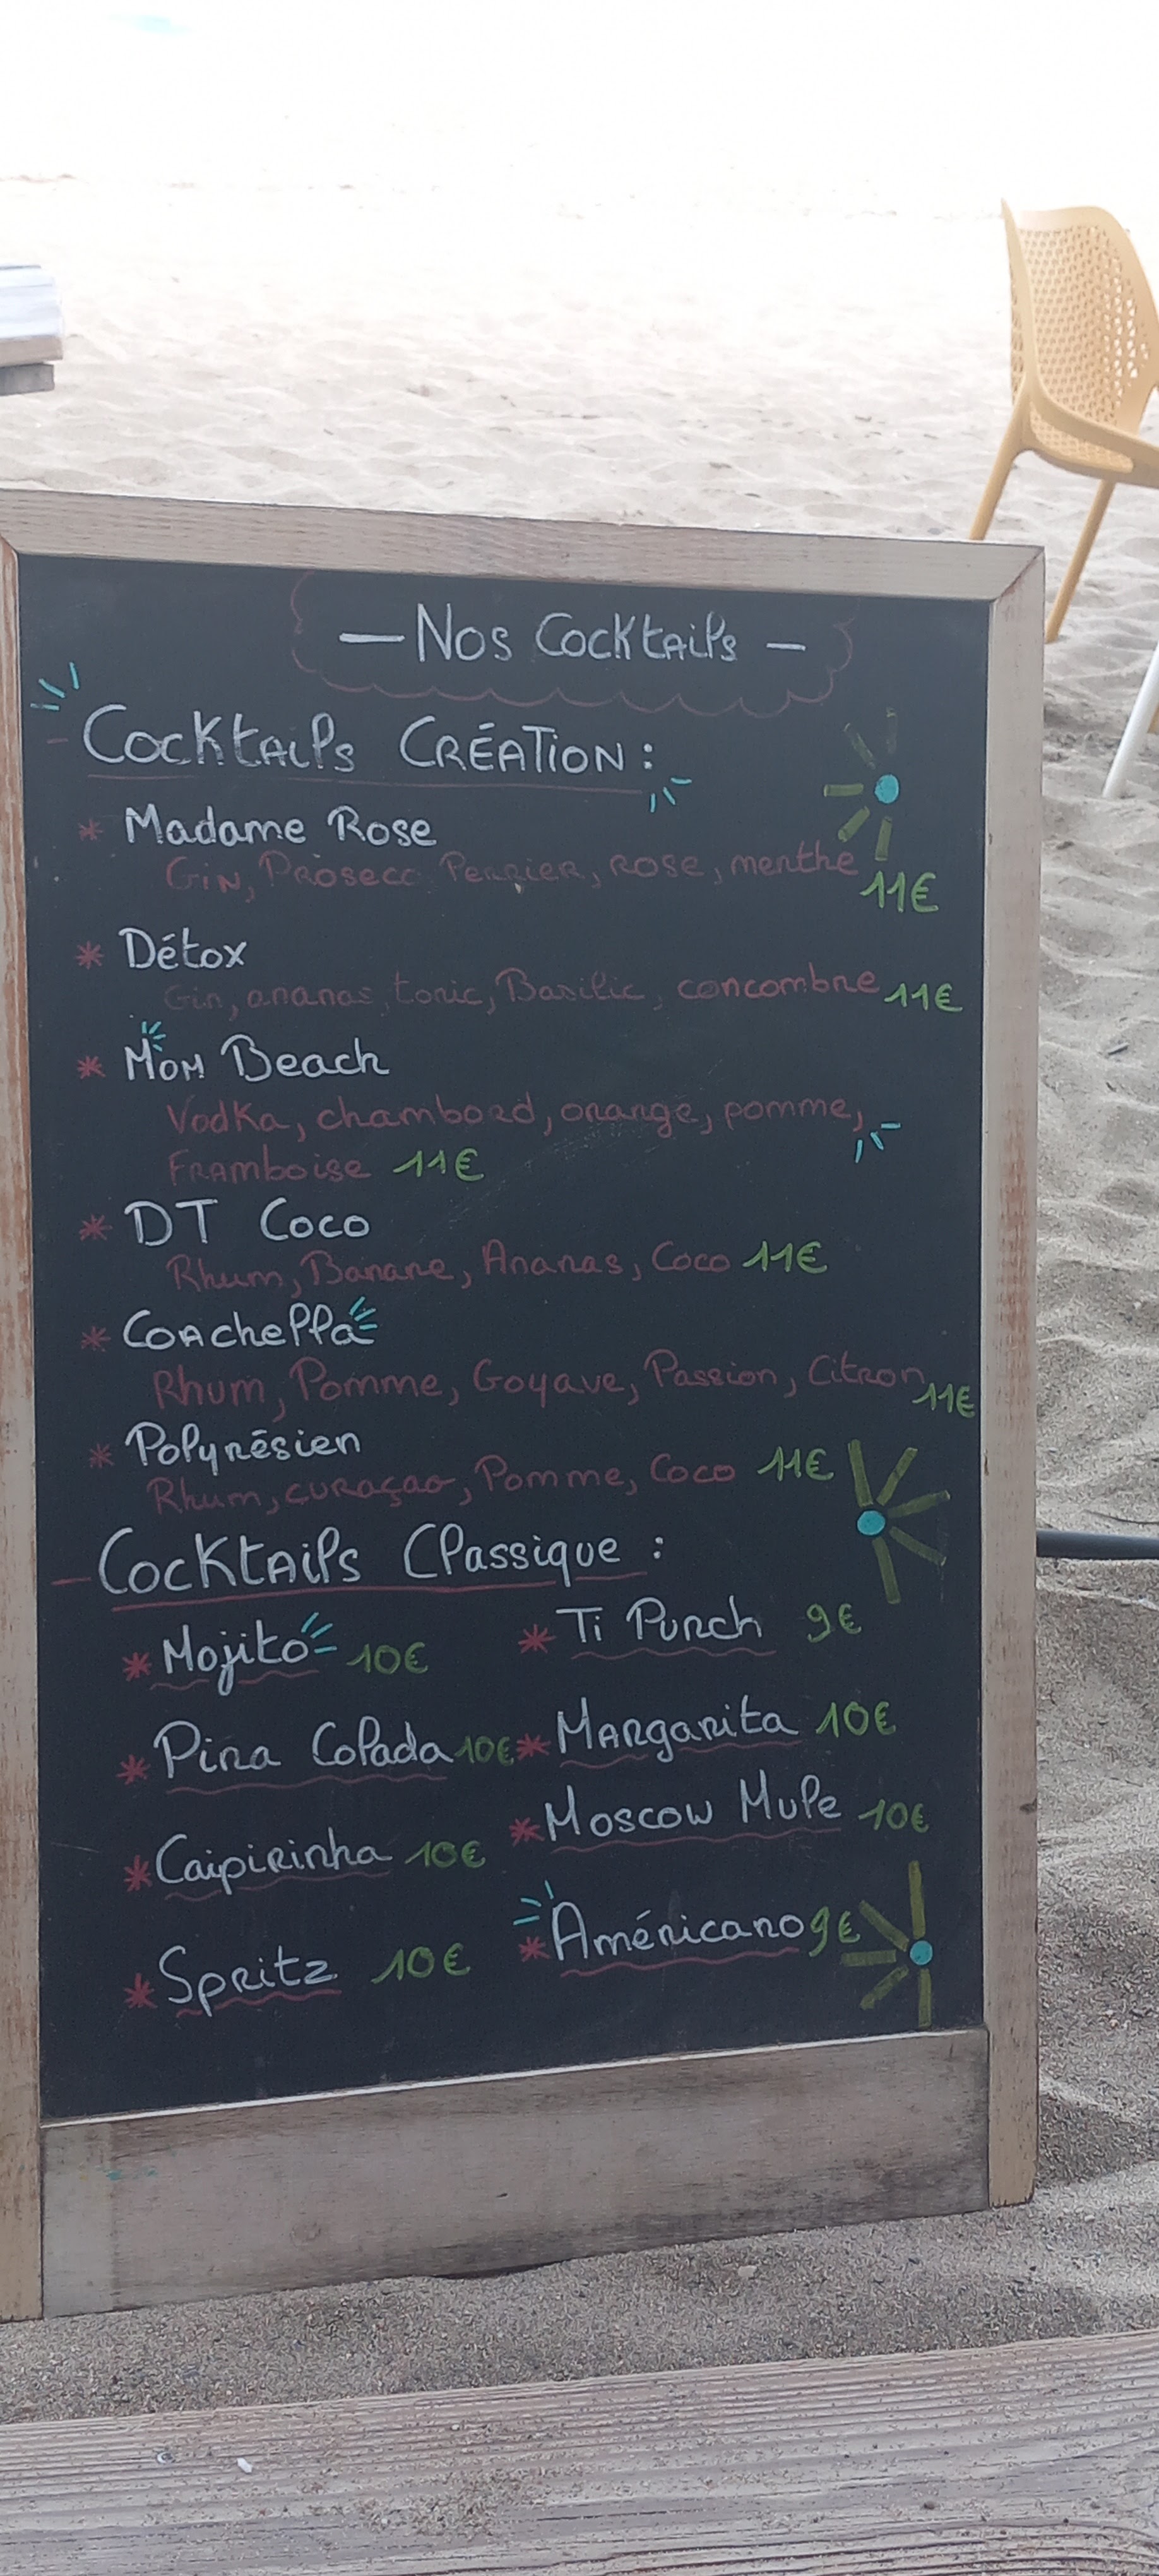 — Nos Cocktails —
- Cocktails CRÉATION :
* Madame Rose
Gin, Prosecc Perrier, rose, menthe 11€
* Détox
Gin, ananas, tonic, Basilic, concombre 11€
* Mom Beach
Vodka, chambord, orange, pomme,
Framboise 11€
* DT Coco
Rhum, Banane, Ananas, Coco 11€
* Coachella
Rhum, Pomme, Goyave, Passion, Citron 11€
* Polynésien
Rhum, curaçao, Pomme, Coco 11€
- Cocktails Classique :
* Mojito 10€ * Ti Punch 9€
* Pina Colada 10€ * Margarita 10€
* Caipirinha 10€ * Moscow Mule 10€
* Spritz 10€ * Américano 9€